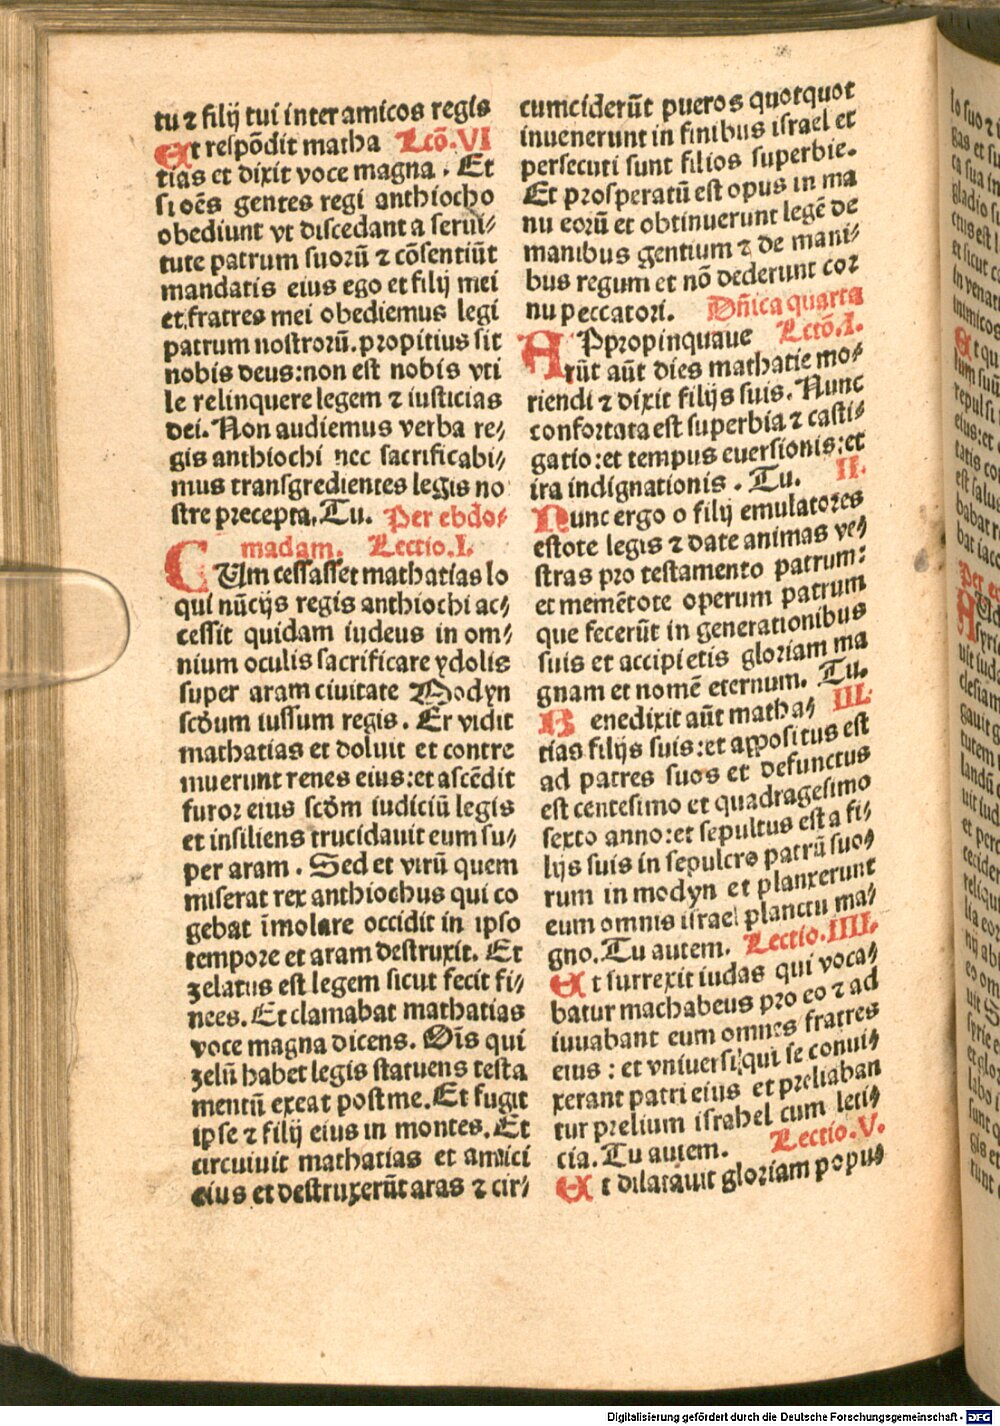 tu ⁊ filij tui inter amicos regis
Et respōdit matha Lcō.VI
tias et dixit voce magna. Et
si oēs gentes regi anthiocho
obediunt vt discedant a serui⸗
tute patrum suorū ⁊ cōsentiūt
mandatis eius ego et filij mei
et fratres mei obediemus legi
patrum nostrorū. propitius sit
nobis deus: non est nobis vti
le relinquere legem ⁊ iusticias
dei. Non audiemus verba re⸗
gis anthiochi nec sacrificabi⸗
mus transgredientes legis no
stre precepta. Tu. Per ebdo⸗
madam. Lectio.I.
CUm cessasset mathatias lo
qui nūcijs regis anthiochi ac⸗
cessit quidam iudeus in om⸗
nium oculis sacrificare ydolis
super aram ciuitate Modyn
scdum iussum regis. Er vidit
mathatias et doluit et contre
muerunt renes eius: et ascēdit
furor eius scdm iudiciū legis
et insiliens trucidauit eum su⸗
per aram. Sed et virū quem
miserat rex anthiochus qui co
gebat īmolare occidit in ipso
tempore et aram destruxit. Et
zelatus est legem sicut fecit fi⸗
nees. Et clamabat mathatias
voce magna dicens. Oīs qui
zelū habet legis statuens testa
mentū exeat post me. Et fugit
ipse ⁊ filij eius in montes. Et
circuiuit mathatias et amici
eius et destruxerūt aras ⁊ cir⸗
cumciderūt pueros quotquot
inuenerunt in finibus israel et
persecuti sunt filios superbie.
Et prosperatū est opus in ma
nu eorū et obtinuerunt legē de
manibus gentium ⁊ de mani⸗
bus regum et nō dederunt cor
nu peccatori. Dn̄ica quarta
APpropinquaue Lectō.I.
rūt aūt dies mathatie mo⸗
riendi ⁊ dixit filijs suis. Nunc
confortata est superbia ⁊ casti⸗
gatio: et tempus euersionis: et
ira indignationis. Tu. II.
Nunc ergo o filij emulatores
estote legis ⁊ date animas ve⸗
stras pro testamento patrum:
et memētote operum patrum
que fecerūt in generationibus
suis et accipietis gloriam ma
gnam et nomē eternum. Tu.
Benedixit aūt matha⸗ III.
tias filijs suis: et appositus est
ad patres suos et defunctus
est centesimo et quadragesimo
sexto anno: et sepultus est a fi⸗
lijs suis in sepulcro patrū suo⸗
rum in modyn et planxerunt
eum omnis israel planctu ma⸗
gno. Tu autem. Lectio.IIII.
Et surrexit iudas qui voca⸗
batur machabeus pro eo ⁊ ad
iuuabant eum omnes fratres
eius: et vniuersi qui se coniu⸗
xerant patri eius et preliaban
tur prelium israhel cum leti⸗
cia. Tu autem. Lectio.V.
Et dilatauit gloriam popu⸗
Digitalisierung gefördert durch die Deutsche Forschungsgemeinschaft - DFG